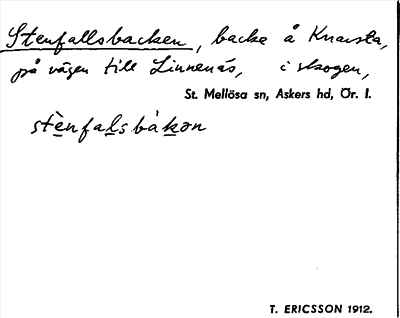 Stenfallsbacken, backe å Knavsta,
på vägen till Linnenäs, i skogen,
St. Mellösa sn, Askers hd, Ör. l.
stènfalsbàkən
T. ERICSSON 1912.